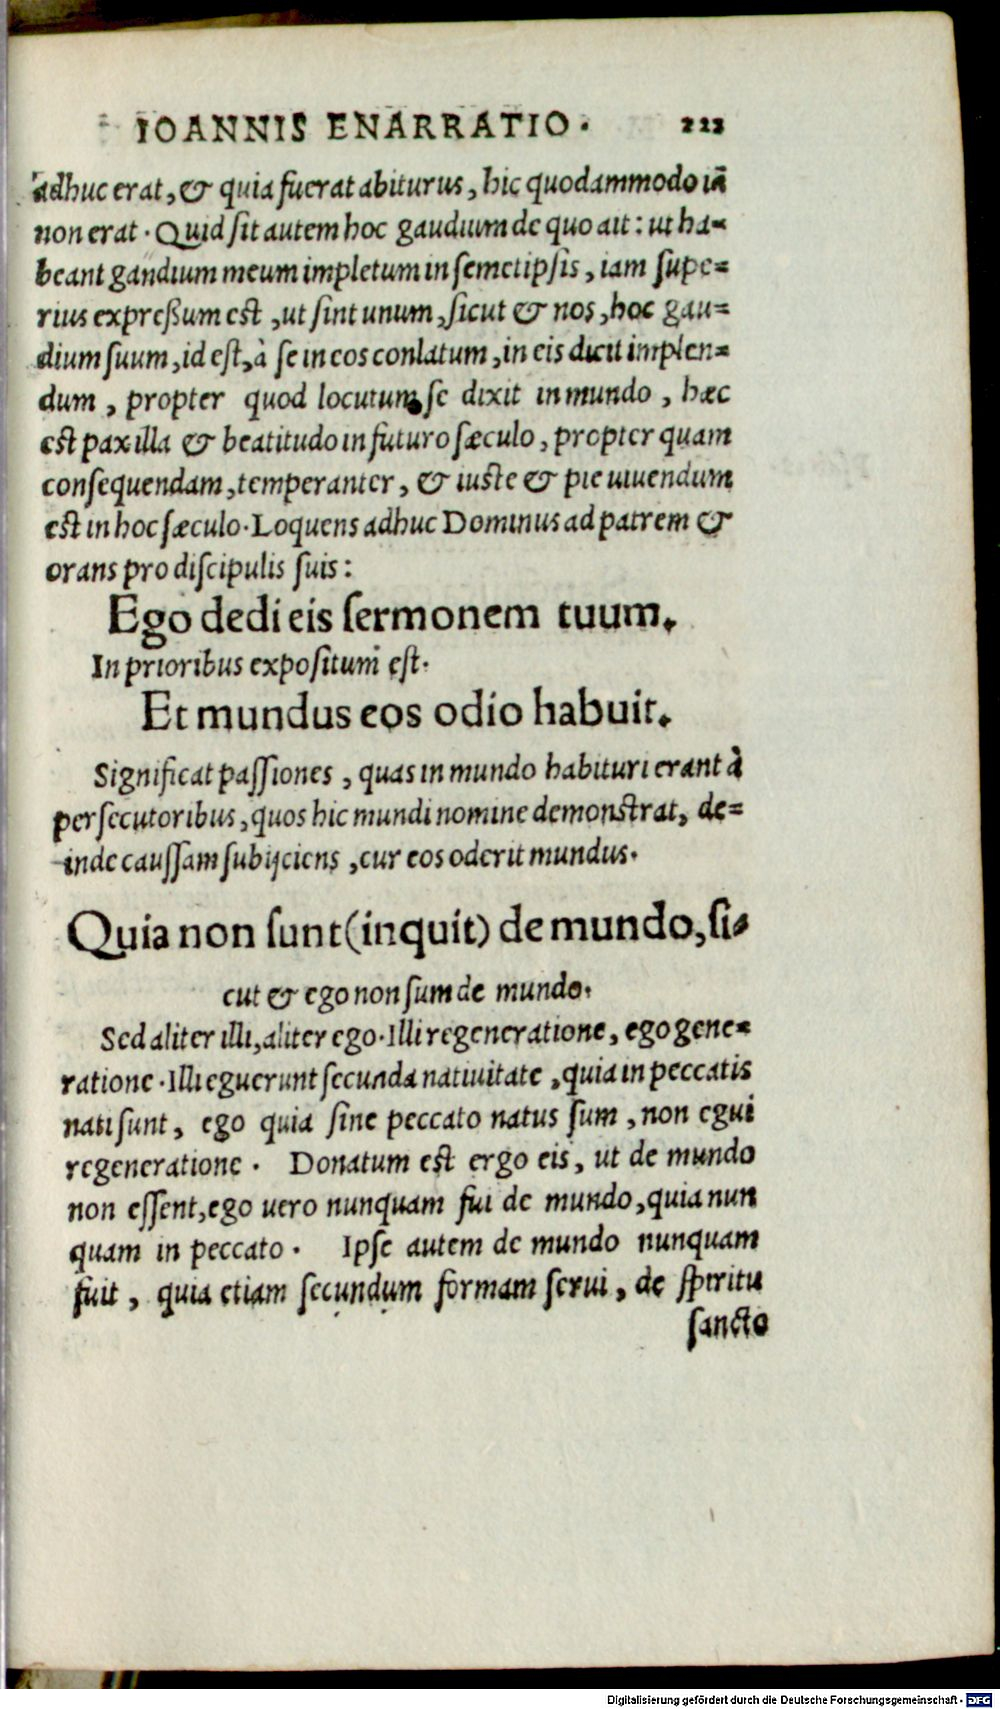 IOANNIS ENARRATIO. 223
adhuc erat, & quia fuerat abiturus, hic quodammodo iã
non erat. Quid sit autem hoc gaudium de quo ait: ut ha-
beant gaudium meum impletum in semetipsis, iam supe-
rius expreßum est, ut sint unum, sicut & nos, hoc gau-
dium suum, id est, à se in eos conlatum, in eis dicit implen-
dum, propter quod locutum se dixit in mundo, hæc
est pax illa & beatitudo in futuro sæculo, propter quam
consequendam, temperanter, & iuste & pie uiuendum
est in hoc sæculo. Loquens adhuc Dominus ad patrem &
orans pro discipulis suis:
Ego dedi eis sermonem tuum.
In prioribus expositum est.
Et mundus eos odio habuit.
Significat passiones, quas in mundo habituri erant à
persecutoribus, quos hic mundi nomine demonstrat, de-
inde caussam subijciens, cur eos oderit mundus.
Quia non sunt (inquit) de mundo, si-
cut & ego non sum de mundo.
Sed aliter illi, aliter ego. Illi regeneratione, ego gene-
ratione. Illi eguerunt secunda natiuitate, quia in peccatis
nati sunt, ego quia sine peccato natus sum, non egui
regeneratione. Donatum est ergo eis, ut de mundo
non essent, ego uero nunquam fui de mundo, quia nun
quam in peccato. Ipse autem de mundo nunquam
fuit, quia etiam secundum formam serui, de spiritu
sancto
Digitalisierung gefördert durch die Deutsche Forschungsgemeinschaft - DFG